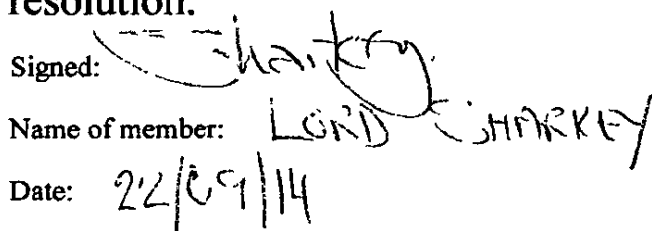 resolution.
Signed: Sharkey
Name of member: LORD SHARKEY
Date: 22/09/14